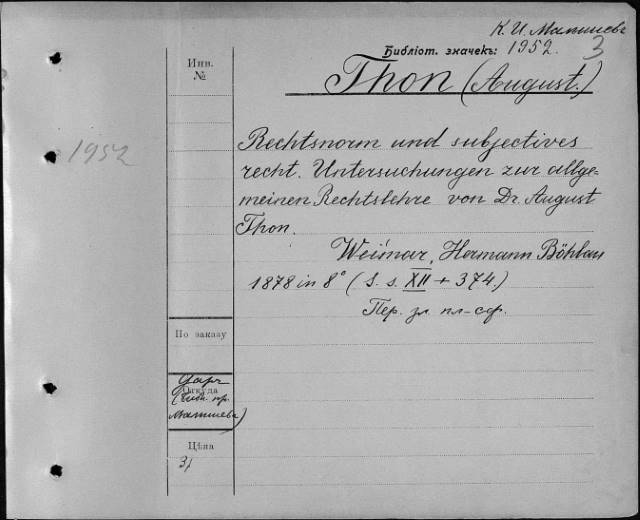 К. И. Малышевъ
Библіот. значекъ: 1952. 3
Thon (August.)
Инв.
№
1952
Rechtsnorm und subjectives
recht. Untersuchungen zur allge-
meinen Rechtslehre von Dr. August
Thon.
Weimar, Hermann Böhlau
1878 in 8° (S. s. XII + 374.)
Пер. зл. пл-сф.
По заказу
Даръ
Откуда
(библ. пр.
Малышева)
Цѣна
3/